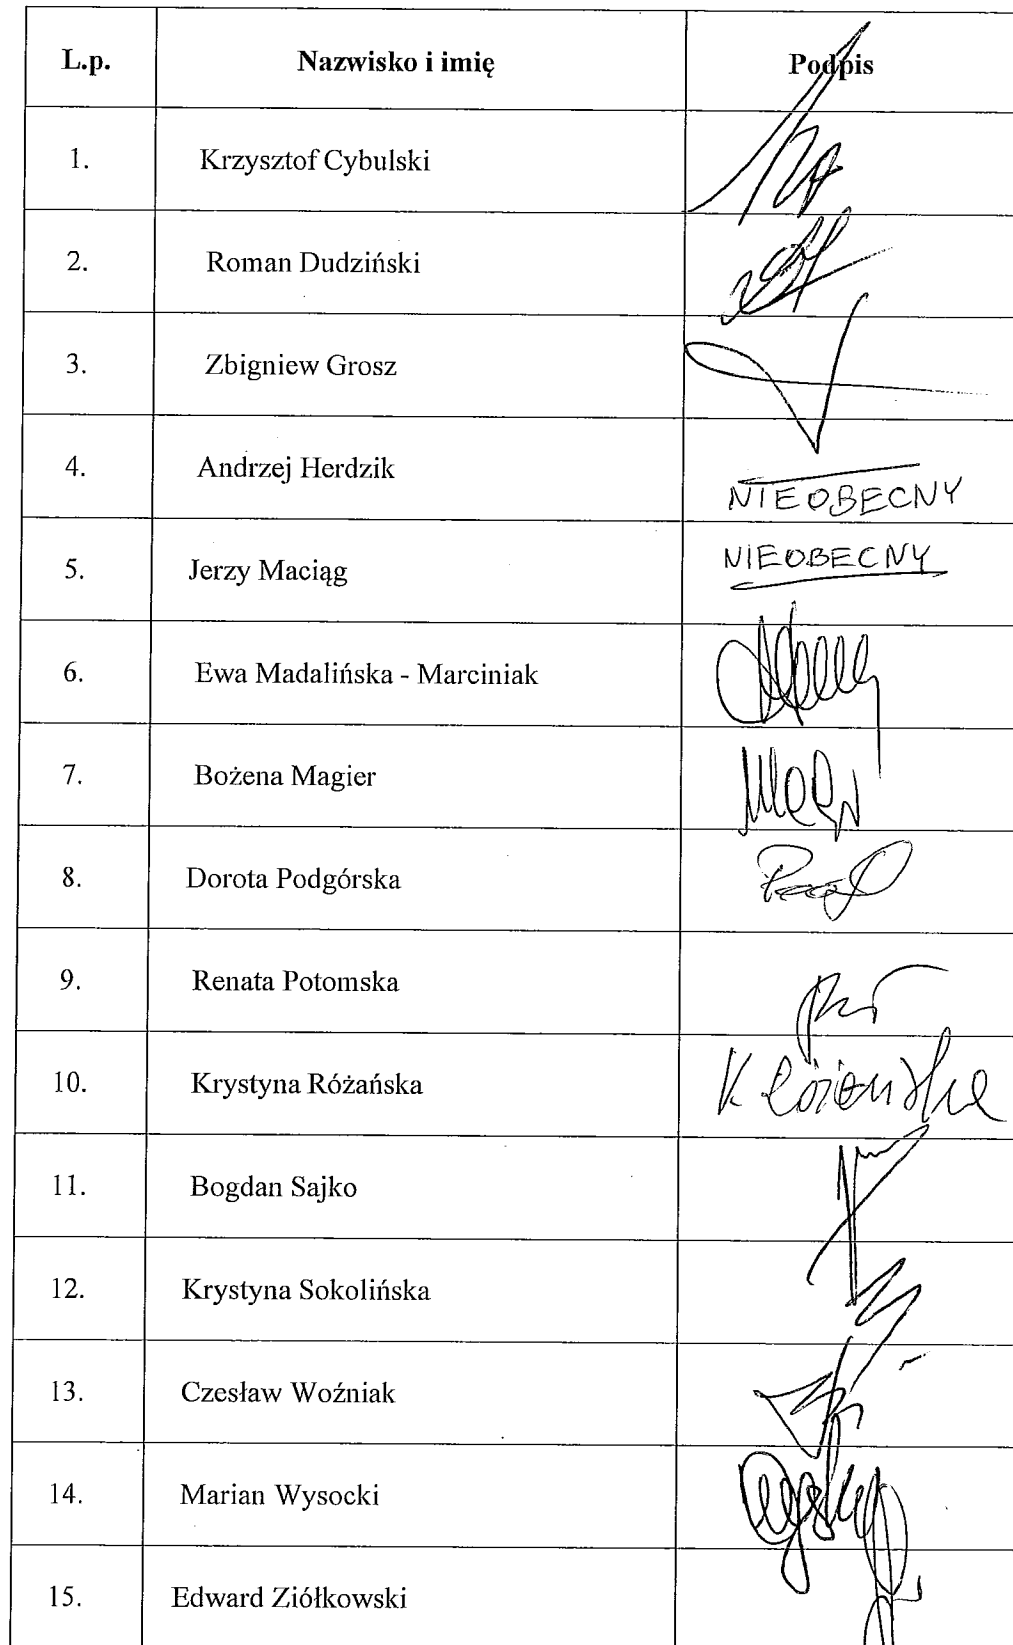 L.p. Nazwisko i imię Podpis
1. Krzysztof Cybulski
2. Roman Dudziński
3. Zbigniew Grosz
4. Andrzej Herdzik NIEOBECNY
5. Jerzy Maciąg NIEOBECNY
6. Ewa Madalińska - Marciniak
7. Bożena Magier
8. Dorota Podgórska
9. Renata Potomska
10. Krystyna Różańska
11. Bogdan Sajko
12. Krystyna Sokolińska
13. Czesław Woźniak
14. Marian Wysocki
15. Edward Ziółkowski